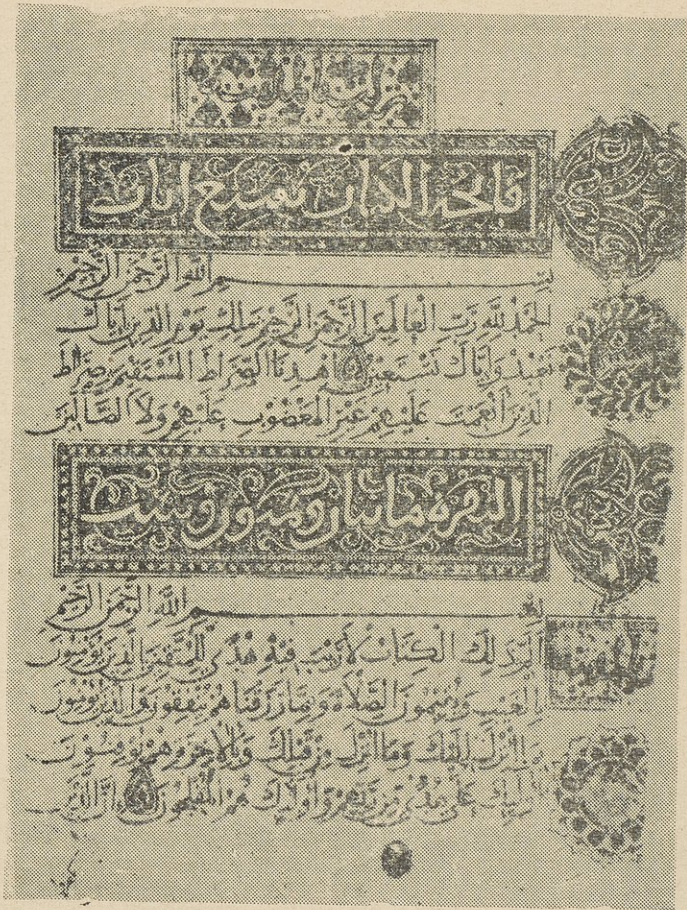 فاتحة الكتاب سبع ايات
بسم الله الرحمن الرحيم
الحمد لله رب العالمين الرحمن الرحيم ملك يوم الدين إياك
نعبد وإياك نستعين اهدنا الصراط المستقيم صراط
الذين أنعمت عليهم غير المغضوب عليهم ولا الضالين
البقرة مائتان وثمنون وست
بسم الله الرحمن الرحيم
الم ذلك الكتاب لا ريب فيه هدى للمتقين الذين يؤمنون
بالغيب ويقيمون الصلاة ومما رزقناهم ينفقون والذين يؤمنون
بما أنزل إليك وما أنزل من قبلك وبالآخرة هم يوقنون
أولئك على هدى من ربهم وأولئك هم المفلحون إن الذين